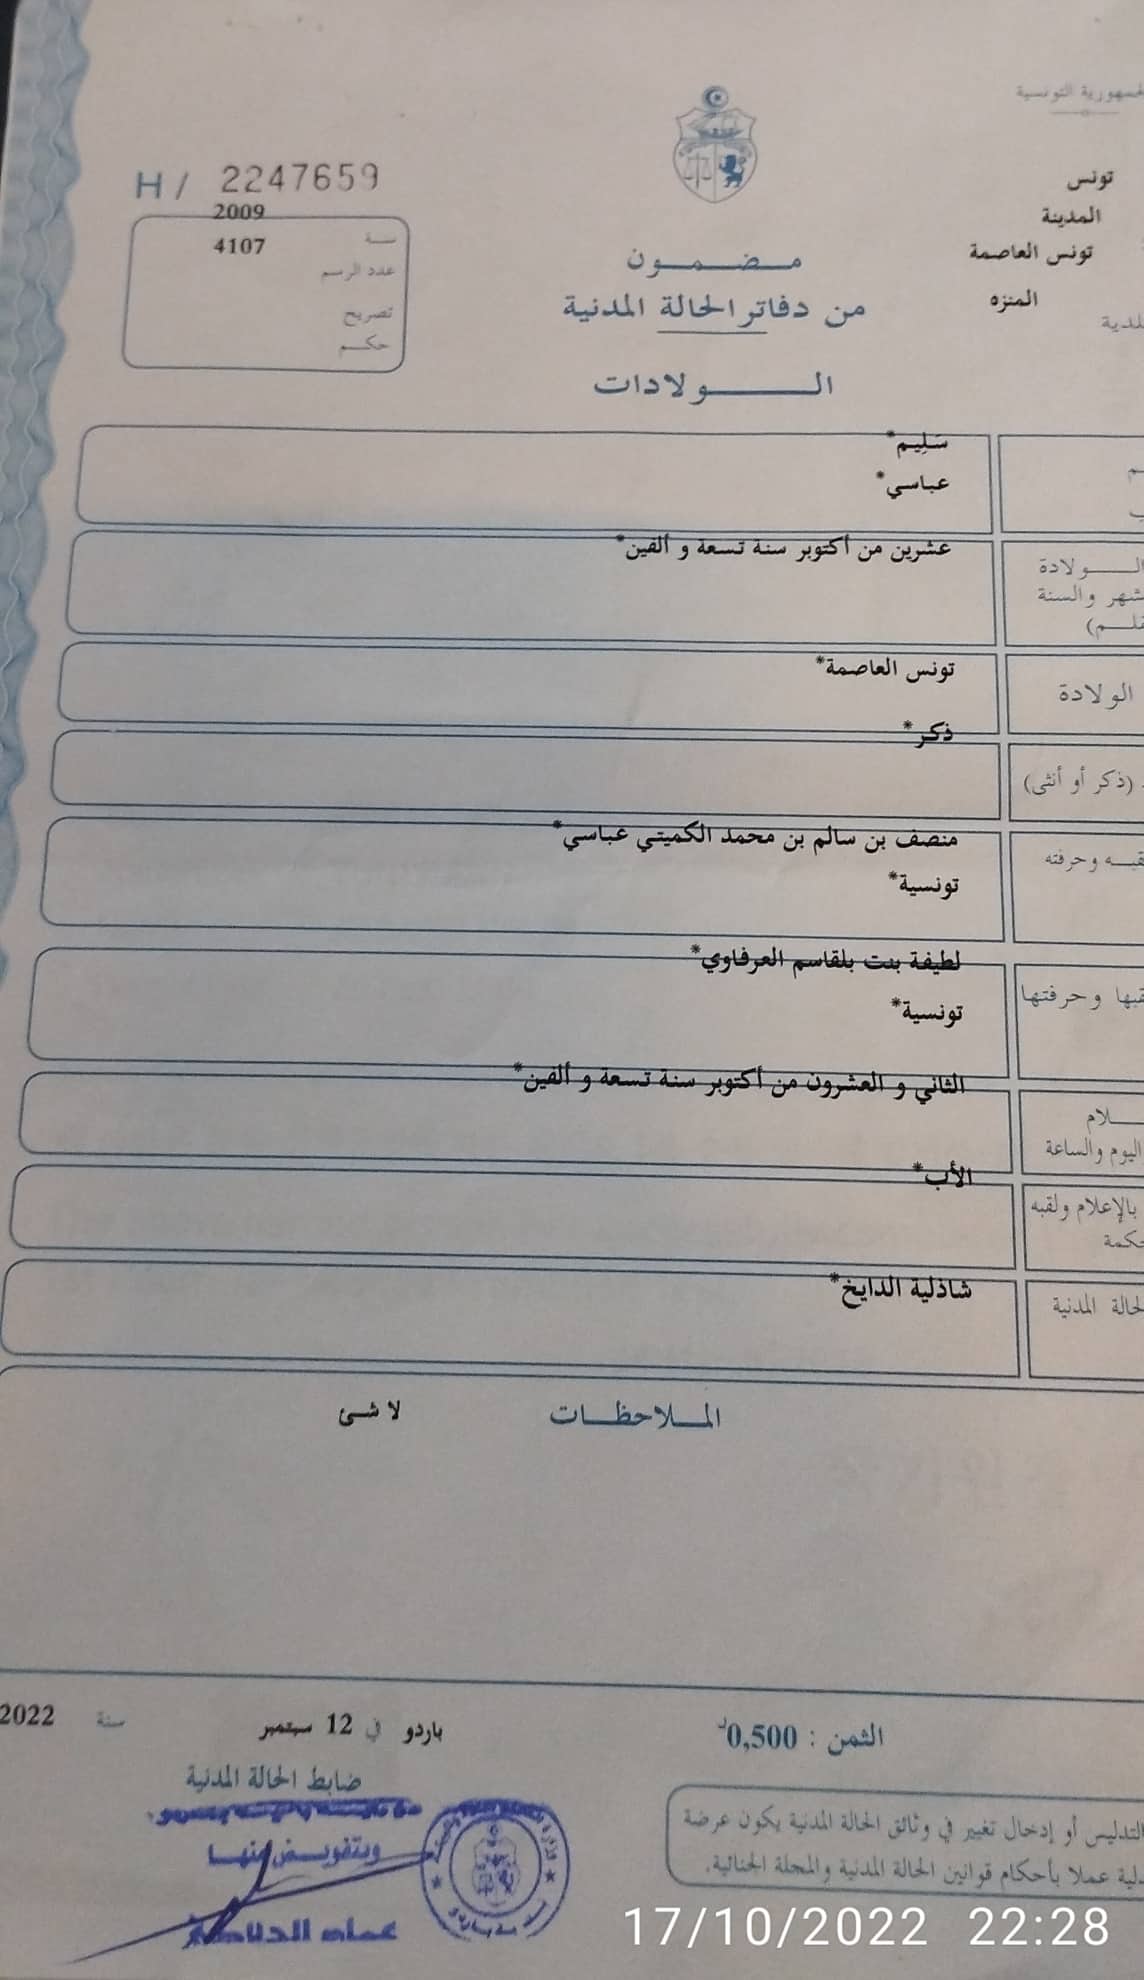 الجمهورية التونسية
تونس
المدينة
تونس العاصمة
المنزه
H / 2247659
2009
سنة
4107
عدد الرسم
تصريح
حكم
مضمون
من دفاتر الحالة المدنية
الولادات
سَلِيم*
عباسي*
عشرين من أكتوبر سنة تسعة و ألفين*
الولادة
شهر والسنة
تونس العاصمة*
الولادة
ذكر*
(ذكر أو أنثى)
منصف بن سالم بن محمد الكميتي عباسي*
وحرفته
تونسية*
لطيفة بنت بلقاسم العرفاوي*
وحرفتها
تونسية*
الثاني و العشرون من أكتوبر سنة تسعة و ألفين*
اليوم والساعة
الأب*
بالإعلام ولقبه
شاذلية الدايخ*
الحالة المدنية
الملاحظات
لا شئ
باردو في 12 سبتمبر سنة 2022
الثمن : 0,500د
ضابط الحالة المدنية
وبتفويض منها
عماد
التدليس أو إدخال تغيير في وثائق الحالة المدنية يكون عرضة
عملا بأحكام قوانين الحالة المدنية والمجلة الجنائية.
17/10/2022 22:28